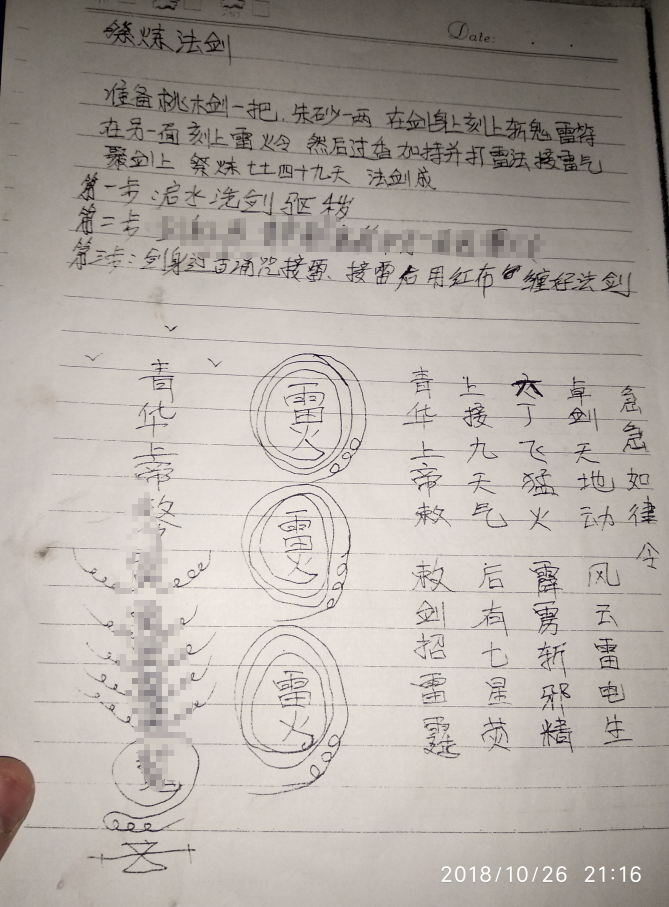 Date:
祭炼法剑
准备桃木剑一把.朱砂一两 在剑身上刻上斩鬼雷符
在另一面刻上雷火令 然后过香加持并打雷法接雷气
聚剑上 祭炼七七四十九天 法剑成
第一步:洗剑驱秽
第二步
第三步:剑身过百诵咒接雷、接雷后用红布缠好法剑
青华上帝
雷火
雷火
雷火
青华上帝敕 敕剑招雷霆
上接九天气 后有七星荧
六丁飞猛火 霹雳斩邪精
卓剑天地动 风云雷电生
急急如律令
2018/10/26 21:16